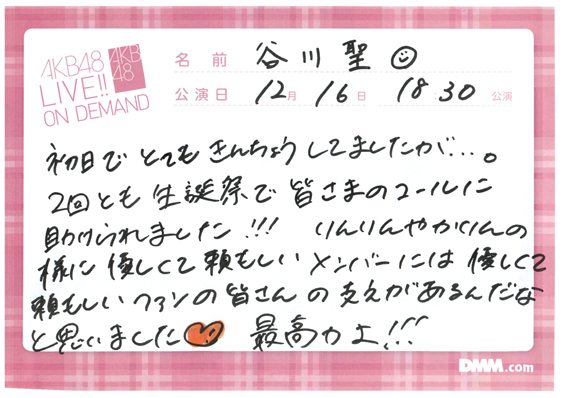 AKB48
LIVE!!
ON DEMAND
AKB
48
名前 谷川聖
公演日 12月 16日 18:30 公演
初日でとてもきんちょうしてましたが…。
2回とも生誕祭で皆さまのコールに
助けられました!!! りんりんやかりんの
様に優しくて頼もしいメンバーには優しくて
頼もしいファンの皆さんの支えがあるんだな
と思いました 最高カよ!!!
DMM.com